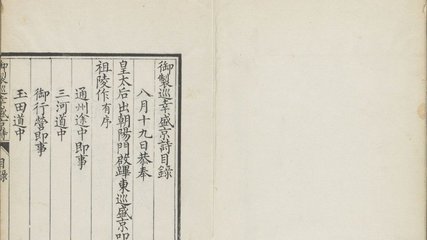 御製巡幸盛京詩目錄
八月十九日恭奉
皇太后出朝陽門啟蹕東巡盛京叩
祖陵作有序
通州途中即事
三河道中
御行營即事
玉田道中
御製巡幸盛京詩 目錄